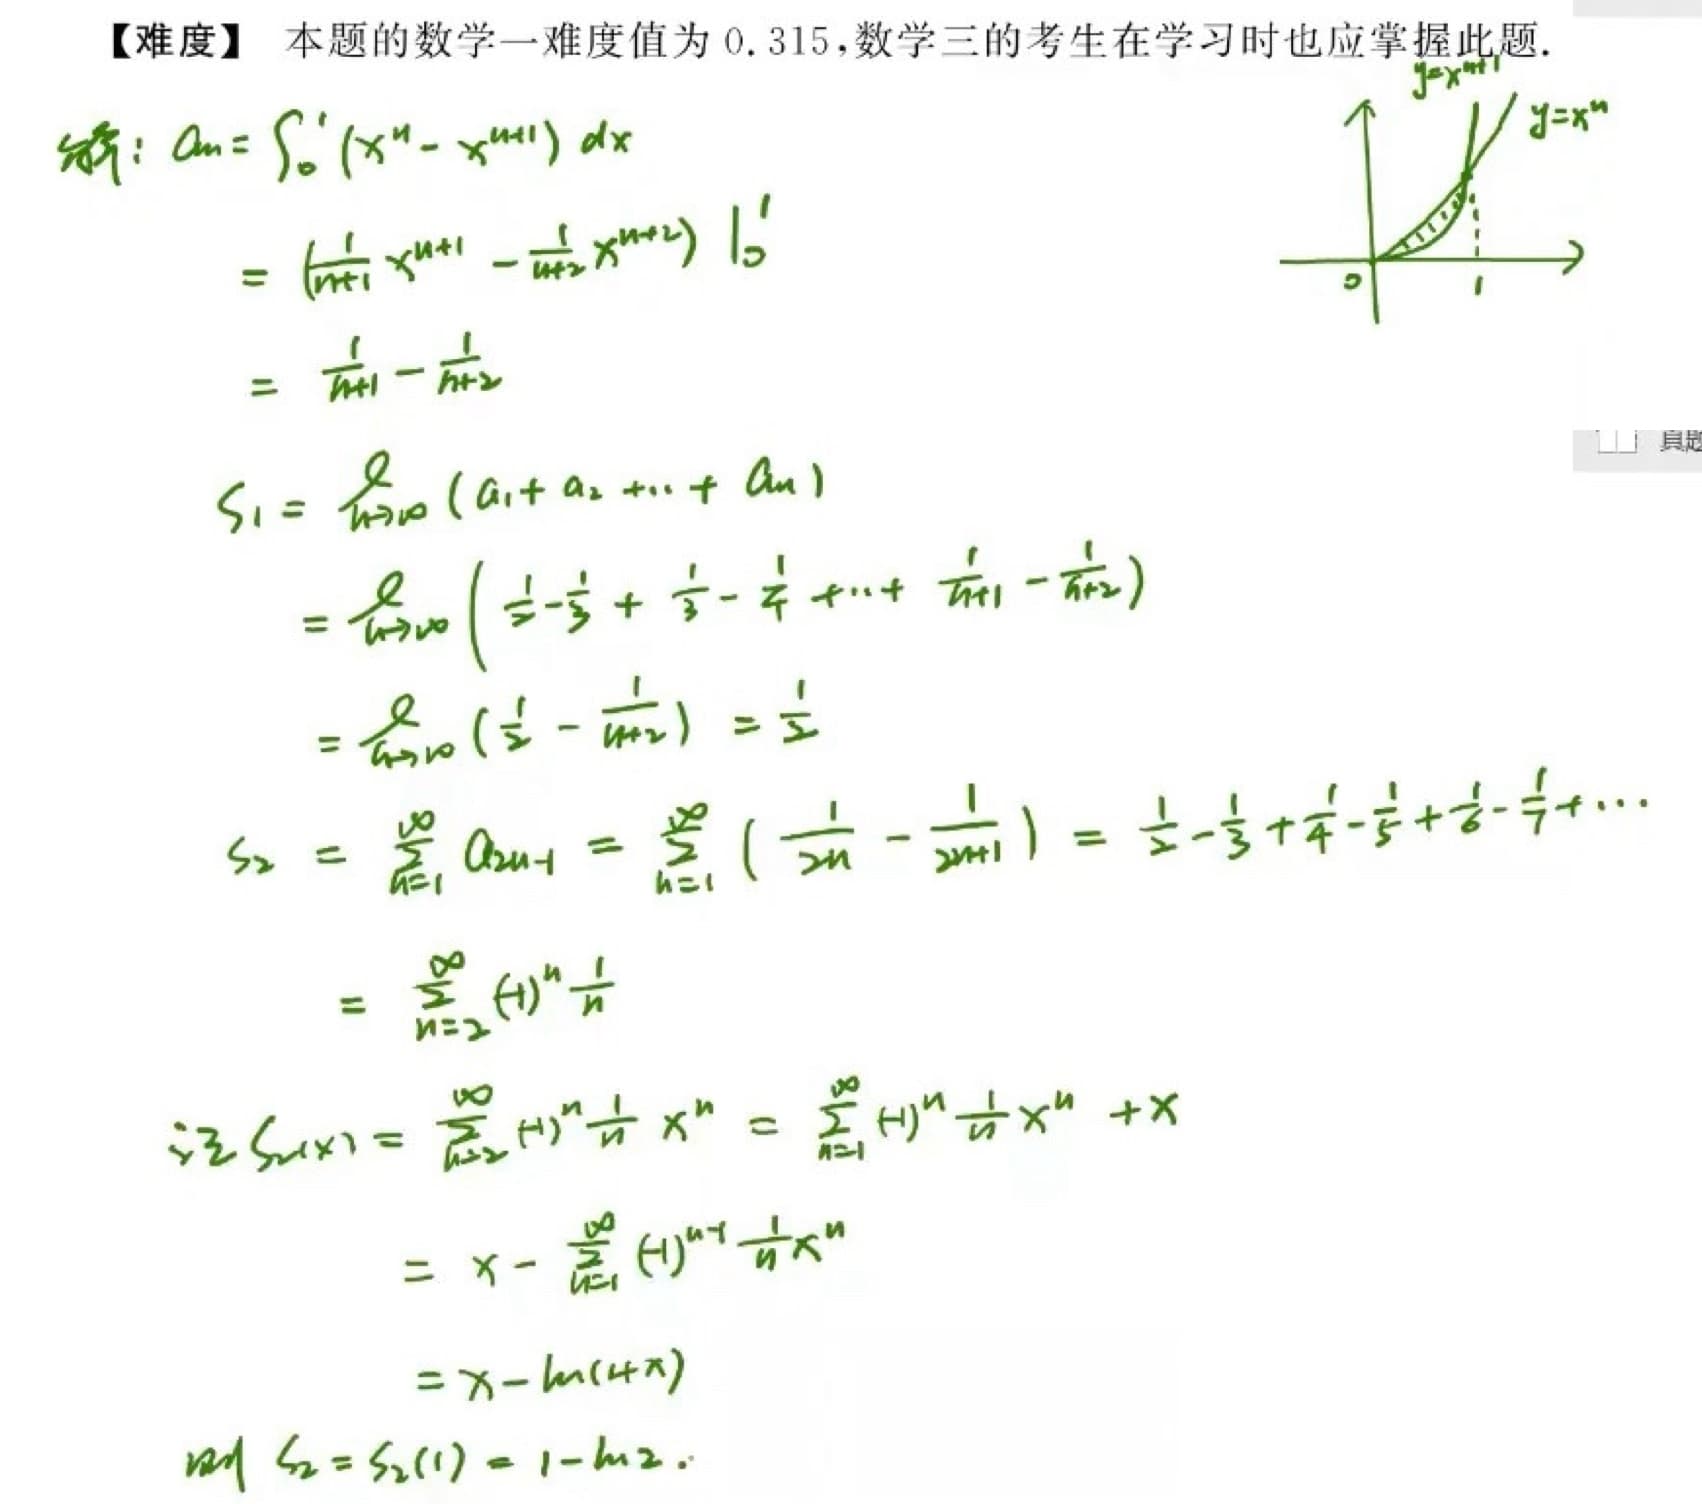 【难度】 本题的数学一难度值为 0.315,数学三的考生在学习时也应掌握此题.
y=x^{n+1}
y=x^n
0 1
解: a_n = ∫_0^1 (x^n - x^{n+1}) dx
= (\frac{1}{n+1} x^{n+1} - \frac{1}{n+2} x^{n+2}) |_0^1
= \frac{1}{n+1} - \frac{1}{n+2}
真题
S_1 = \lim_{n→∞} (a_1 + a_2 + ... + a_n)
= \lim_{n→∞} (\frac{1}{2} - \frac{1}{3} + \frac{1}{3} - \frac{1}{4} + ... + \frac{1}{n+1} - \frac{1}{n+2})
= \lim_{n→∞} (\frac{1}{2} - \frac{1}{n+2}) = \frac{1}{2}
S_2 = \sum_{n=1}^{∞} a_{2n-1} = \sum_{n=1}^{∞} (\frac{1}{2n} - \frac{1}{2n+1}) = \frac{1}{2} - \frac{1}{3} + \frac{1}{4} - \frac{1}{5} + \frac{1}{6} - \frac{1}{7} + ...
= \sum_{n=2}^{∞} (-1)^n \frac{1}{n}
记 S_2(x) = \sum_{n=2}^{∞} (-1)^n \frac{1}{n} x^n = \sum_{n=1}^{∞} (-1)^n \frac{1}{n} x^n + x
= x - \sum_{n=1}^{∞} (-1)^{n-1} \frac{1}{n} x^n
= x - ln(1+x)
则 S_2 = S_2(1) = 1 - ln2.